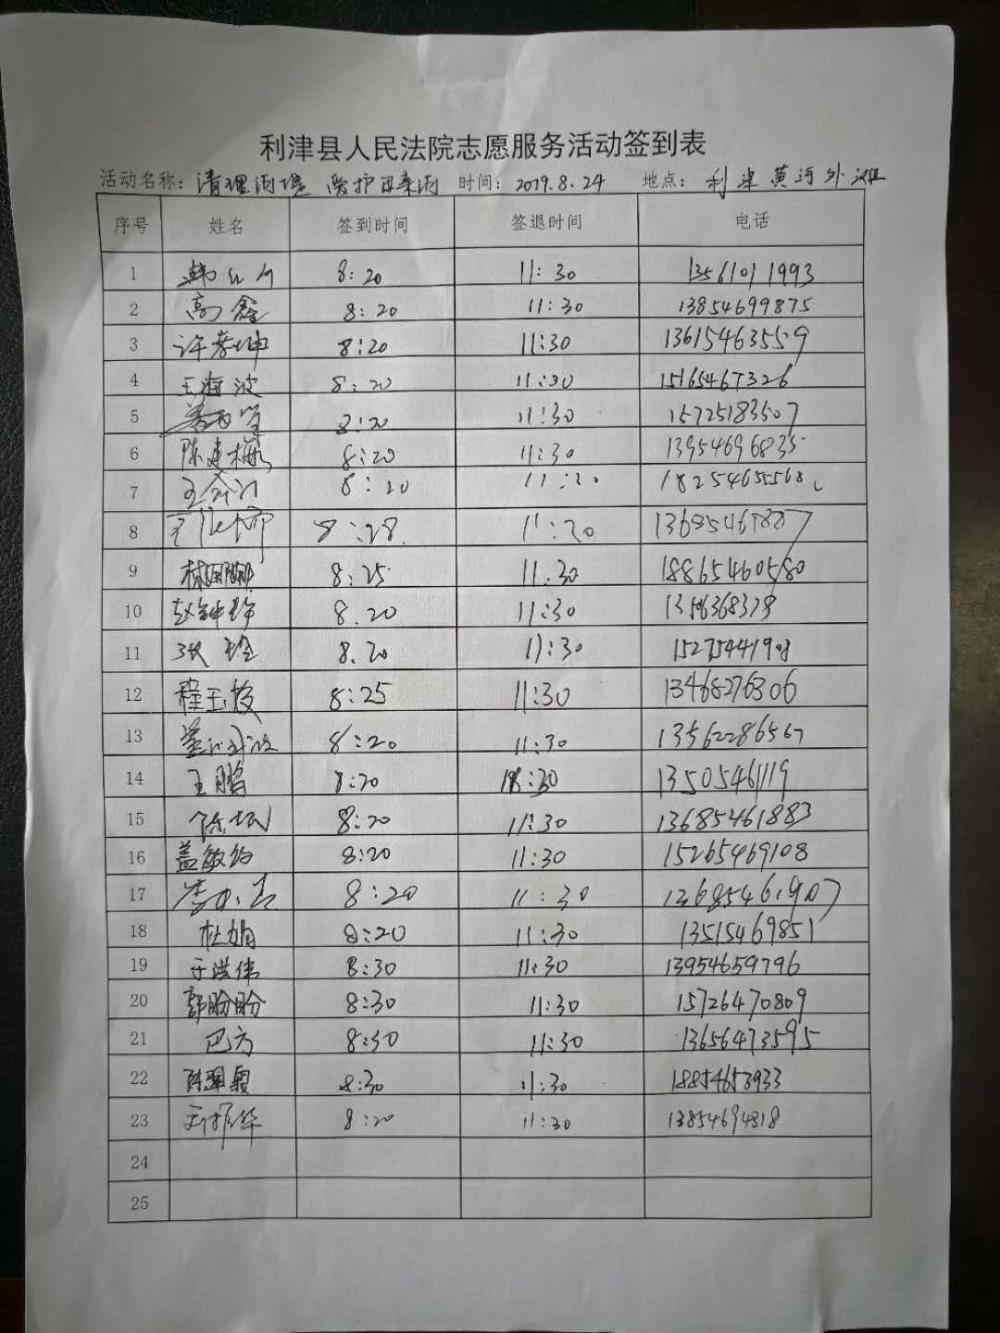 利津县人民法院志愿服务活动签到表
活动名称：清理河堤 爱护母亲河 时间：2019.8.24 地点：利津黄河外滩
序号 姓名 签到时间 签退时间 电话
1 8:20 11:30 13561011993
2 高鑫 8:20 11:30 13854699875
3 许孝坤 8:20 11:30 13615463559
4 王海波 8:20 11:30 15165467326
5 8:20 11:30 15725183507
6 陈建梅 8:20 11:30 13954696835
7 8:20 11:20 18254655568
8 8:28 11:20
9 林丽娜 8:25 11.30 18865460580
10 赵钟玲 8.20 11:30
11 张玲 8.20 11:30
12 程玉枝 8:25 11:30 13468276306
13 8:20 11:30 13562286567
14 王鹏 8:20 11:30 13505461119
15 8:20 11:30 13685461883
16 盖敏 8:20 11:30 15265469108
17 8:20 11:30 13685461907
18 杜娟 8:20 11:30 13515469851
19 于洪伟 8:30 11:30 13954659796
20 郭盼盼 8:30 11:30 15726470809
21 巴方 8:30 11:30 13656473595
22 陈翠霞 8:30 11:30 18854653933
23 8:20 11:30 13854694818
24
25